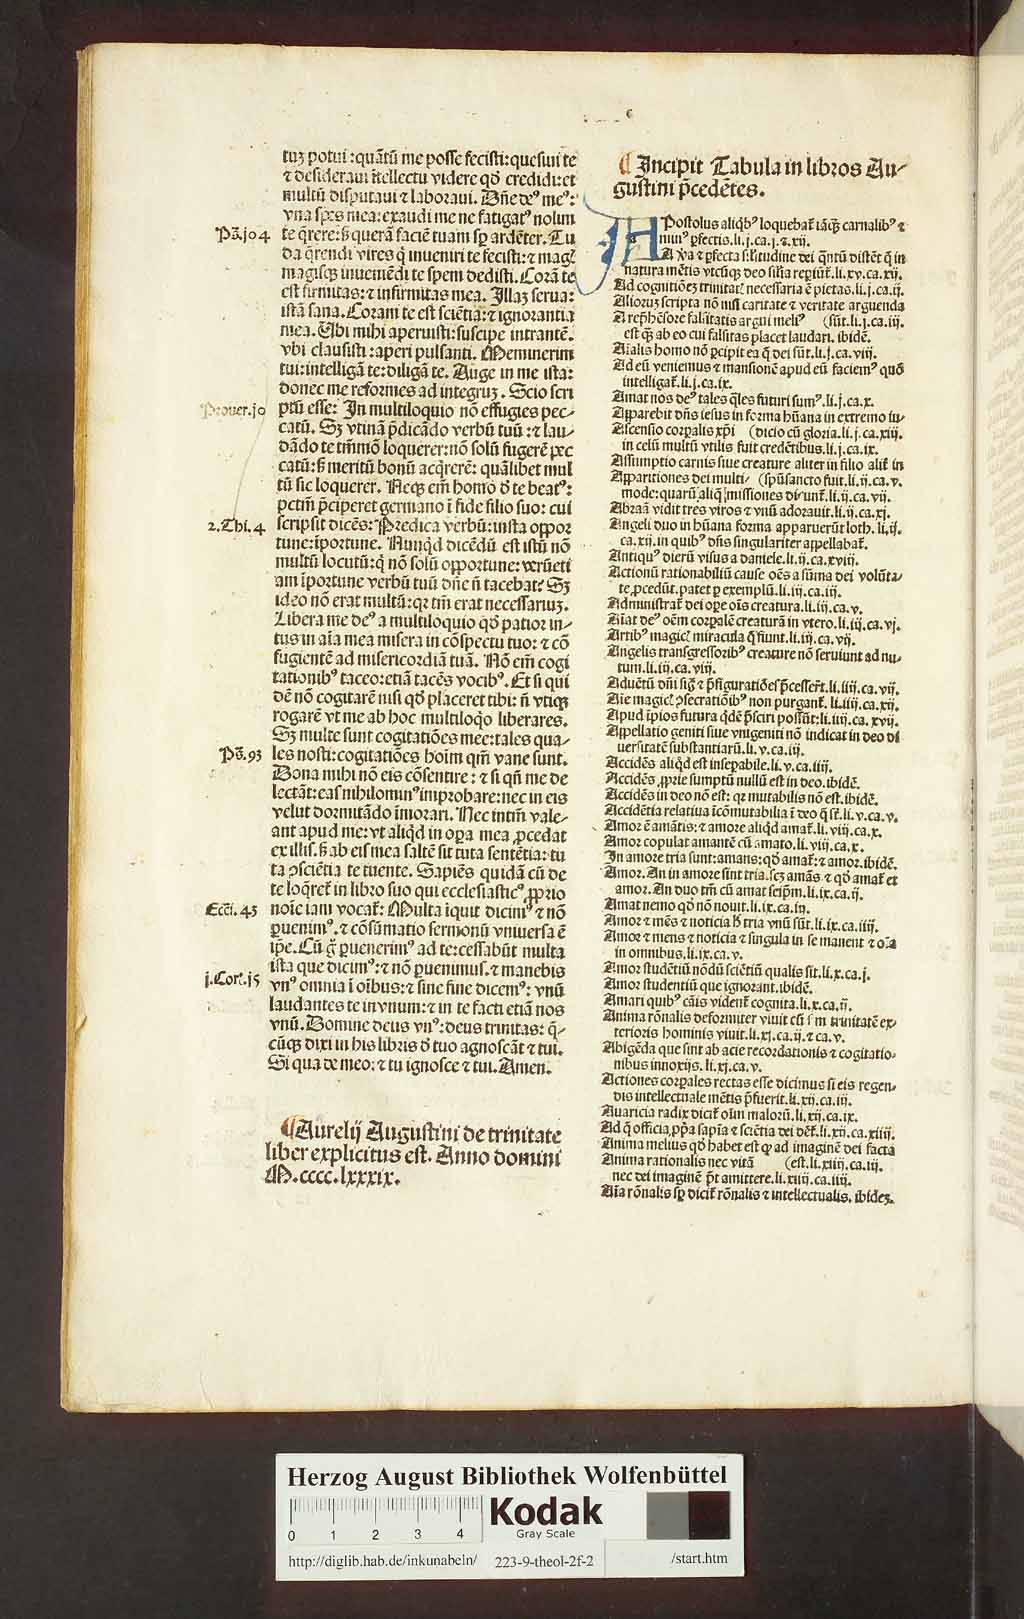 tuꝫ potui: quãtũ me posse fecisti: quesiui te
⁊ desideraui ĩtellectu videre qđ credidi: et
multũ disputaui ⁊ laboraui. Dñe deꝰ meꝰ:
vna spes mea: exaudi me ne fatigatꝰ nolim
Pš. jo4
te q̃rere: ß querã faciẽ tuam sꝑ ardẽter. Tu
da q̃rendi vires q̇ inueniri te fecisti: ⁊ magꝭ
magisqꝫ inueniẽdi te spem dedisti. Corã te
est firmitas: ⁊ infirmitas mea. Illaꝫ serua:
istã sana. Coram te est sciẽtia: ⁊ ignorantia
mea. Ubi mihi aperuisti: suscipe intrantẽ.
vbi clausisti: aperi pulsanti. Meminerim
tui: intelligã te: diligã te. Auge in me ista:
donec me reformes ad integruꝫ. Scio scri
Prouer. jo
ptũ esse: In multiloquio nõ effugies pec-
catũ. Sꝫ vtinã p̃dicãdo verbũ tuũ: ⁊ lau-
dãdo te tm̃mõ loquerer: nõ solũ fugerẽ pec
catũ: ß meritũ bonũ acq̃rerẽ: quãlibet mul
tũ sic loquerer. Neqꝫ em̃ homo đ te beatꝰ:
pctm̃ p̃ciperet germano ĩ fide filio suo: cui
2. Thi. 4
scripsit dicẽs: Predica verbũ: insta oppor
tune: ĩportune. Nunqđ dicẽdũ est istũ nõ
multũ locutũ: q̇ nõ solũ opportune: verũeti
am ĩportune verbũ tuũ dñe ñ tacebat? Sꝫ
ideo nõ erat multũ: qꝛ tm̃ erat necessariuꝫ.
Libera me deꝰ a multiloquio qđ patior in-
tus in aĩa mea misera in cõspectu tuo: ⁊ cõ
fugientẽ ad misericordiã tuã. Nõ em̃ cogi
tationibꝰ taceo: etiã tacẽs vocibꝰ. Et si qui
dẽ nõ cogitarẽ nisi qđ placeret tibi: ñ vtiqꝫ
rogarẽ vt me ab hoc multiloq̇o liberares.
Sꝫ multe sunt cogitatiões mee: tales qua-
Pš. 93
les nosti: cogitatiões hoĩm qm̃ vane sunt.
Dona mihi nõ eis cõsentire: ⁊ si qñ me de
lectãt: eas nihilominꝰ improbare: nec in eis
velut dormitãdo ĩmorari. Nec intm̃ vale-
ant apud me: vt aliqđ in oꝑa mea ꝓcedat
ex illis. ß ab eis mea saltẽ sit tuta sentẽtia: tu
ta ꝯsciẽtia te tuente. Sapiẽs quidã cũ de
te loq̃ret̃ in libro suo qui ecclesiasticꝰ ꝓprio
Ecci. 43
noĩe iam vocat̃: Multa ĩquit dicimꝰ ⁊ nõ
ꝑuenimꝰ. ⁊ cõsũmatio sermonũ vniuersa ẽ
ip̃e. Cũ g̊ ꝑuenerimꝰ ad te: cessabũt multa
ista que dicimꝰ: ⁊ nõ ꝑuenimus. ⁊ manebis
j. Cor. j5
vnꝰ omnia ĩ oĩbus: ⁊ sine fine dicemꝰ: vnũ
laudantes te in vnum: ⁊ in te facti etiã nos
vnũ. Domine deus vnꝰ: deus trinitas: q̃-
cũqꝫ dixi in his libris đ tuo agnoscãt ⁊ tui.
Si qua de meo: ⁊ tu ignosce ⁊ tui. Amen.
¶ Aurelij Augustini de trinitate
liber explicitus est. Anno domini
M.cccc.lxxxix.
¶ Incipit Tabula in libros Au-
gustini p̃cedẽtes.
APostolus aliq̇bꝰ loquebat̃ tãqꝫ carnalibꝰ ⁊
minꝰ ꝑfectis. li. j. ca. j. ⁊. xij.
A ꝟa ⁊ ꝑfecta siĩlitudine dei q̃ntũ distẽt q̃ in
natura mẽtis vtcũqꝫ deo siĩlia reperiũt̃. li. xv. ca. xij.
Ad cognitiõeꝫ trinitatꝭ necessaria ẽ pietas. li. j. ca. ij.
Alioruꝫ scripta nõ nisi caritate ⁊ veritate arguenda
A rep̃hẽsore falsitatis argui meliꝰ (sũt. li. j. ca. iij.
est qꝫ ab eo cui falsitas placet laudari. ibidẽ.
Aĩalis homo nõ ꝑcipit ea q̃ dei sũt. li. j. ca. viij.
Ad eũ veniemus ⁊ mansionẽ apud eũ faciemꝰ quõ
intelligat̃. li. j. ca. ix.
Amat nos deꝰ tales q̃les futuri sumꝰ. li. j. ca. x.
Apparebit dñs iesus in forma hũana in extremo iu-
Ascensio corꝑalis xp̃i (dicio cũ gloria. li. j. ca. xiij.
in celũ multũ vtilis fuit credẽtibus. li. j. ca. ix.
Assumptio carnis siue creature aliter in filio alit̃ in
Apparitiones dei multi- (spũsancto fuit. li. ij. ca. v.
mode: quarũ aliq̃ missiones dicunt̃. li. ij. ca. vij.
Abraã vidit tres viros ⁊ vnũ adorauit. li. ij. ca. xj.
Angeli duo in hũana forma apparuerũt loth. li. ij.
ca. xij. in quibꝰ dñs singulariter appellabat̃.
Antiquꝰ dierũ visus a daniele. li. ij. ca. xviij.
Actionũ rationabiliũ cause oẽs a sũma dei volũta-
te ꝓcedũt. patet ꝑ exemplũ. li. iij. ca. iij.
Administrat̃ dei oꝑe oĩs creatura. li. iij. ca. v.
Aĩat deꝰ oẽm corꝑalẽ creaturã in vtero. li. iij. ca. vj.
Artibꝰ magicꝭ miracula q̃ fiunt. li. iij. ca. vij.
Angelis transgressoribꝰ creature nõ seruiunt ad nu-
tum. li. iij. ca. viij.
Aduẽtũ dñi sig̃ ⁊ p̃figuratiões p̃cesser̃t. li. iiij. ca. vij.
Aie magicꝭ ꝯsecratiõibꝰ non purgant̃. li. iiij. ca. xij.
Apud ip̃ios futura q̃dẽ p̃sciri possũt: li. iiij. ca. xvij.
Appellatio geniti siue vnigeniti nõ indicat in deo di
uersitatẽ substantiarũ. li. v. ca. iij.
Accidẽs aliqđ est insepabile. li. v. ca. iiij.
Accidẽs ꝓprie sumptũ nullũ est in deo. ibidẽ.
Accidẽs in deo nõ est: qꝛ mutabilis nõ est. ibidẽ.
Accidẽtia relatiua ĩcõmutabilia ĩ deo q̃ sĩt. li. v. ca. v.
Amor ẽ amãtis: ⁊ amore aliqđ amat̃. li. viij. ca. x.
Amor copulat amantẽ cũ amato. li. viij. ca. x.
In amore tria sunt: amans: qđ amat̃: ⁊ amor. ibidẽ.
Amor. An in amore sint tria. scꝫ amãs ⁊ qđ amat̃ et
amor. An duo tm̃ cũ amat seip̃m. li. ix. ca. ij.
Amat nemo qđ nõ nouit. li. ix. ca. iij.
Amor ⁊ mẽs ⁊ noticia ß tria vnũ sũt. li. ix. ca. iiij.
Amor ⁊ mens ⁊ noticia ⁊ singula in se manent ⁊ oĩa
in omnibus. li. ix. ca. v.
Amor studẽtiũ nõdũ sciẽtiũ qualis sit. li. x. ca. j.
Amor studentiũ que ignorant. ibidẽ.
Amari quibꝰ cãis vident̃ cognita. li. x. ca. ij.
Anima rõnalis deformiter viuit cũ ẜm trinitatẽ ex-
terioris hominis viuit. li. xj. ca. ij. ⁊ ca. v.
Abigẽda que sint ab acie recordationis ⁊ cogitatio-
nibus innoxijs. li. xj. ca. v.
Actiones corꝑales rectas esse dicimus si eis regen-
dis intellectuale mẽtis p̃fuerit. li. xij. ca. iij.
Auaricia radix dicit̃ oĩm malorũ. li. xij. ca. ix.
Ad q̃ officia ꝓp̃a sap̃ia ⁊ sciẽtia dei dẽt̃. li. xij. ca. xiiij.
Anima melius qđ habet est ꝙ ad imaginẽ dei facta
Anima rationalis nec vitã (est. li. xiiij. ca. iij.
nec dei imaginẽ p̃t amittere. li. xiiij. ca. iiij.
Aĩa rõnalis sꝑ dicit̃ rõnalis ⁊ intellectualis. ibideꝫ.
Herzog August Bibliothek Wolfenbüttel
0 1 2 3 4
Kodak
Gray Scale
http://diglib.hab.de/inkunabeln/ 223-9-theol-2f-2 /start.htm